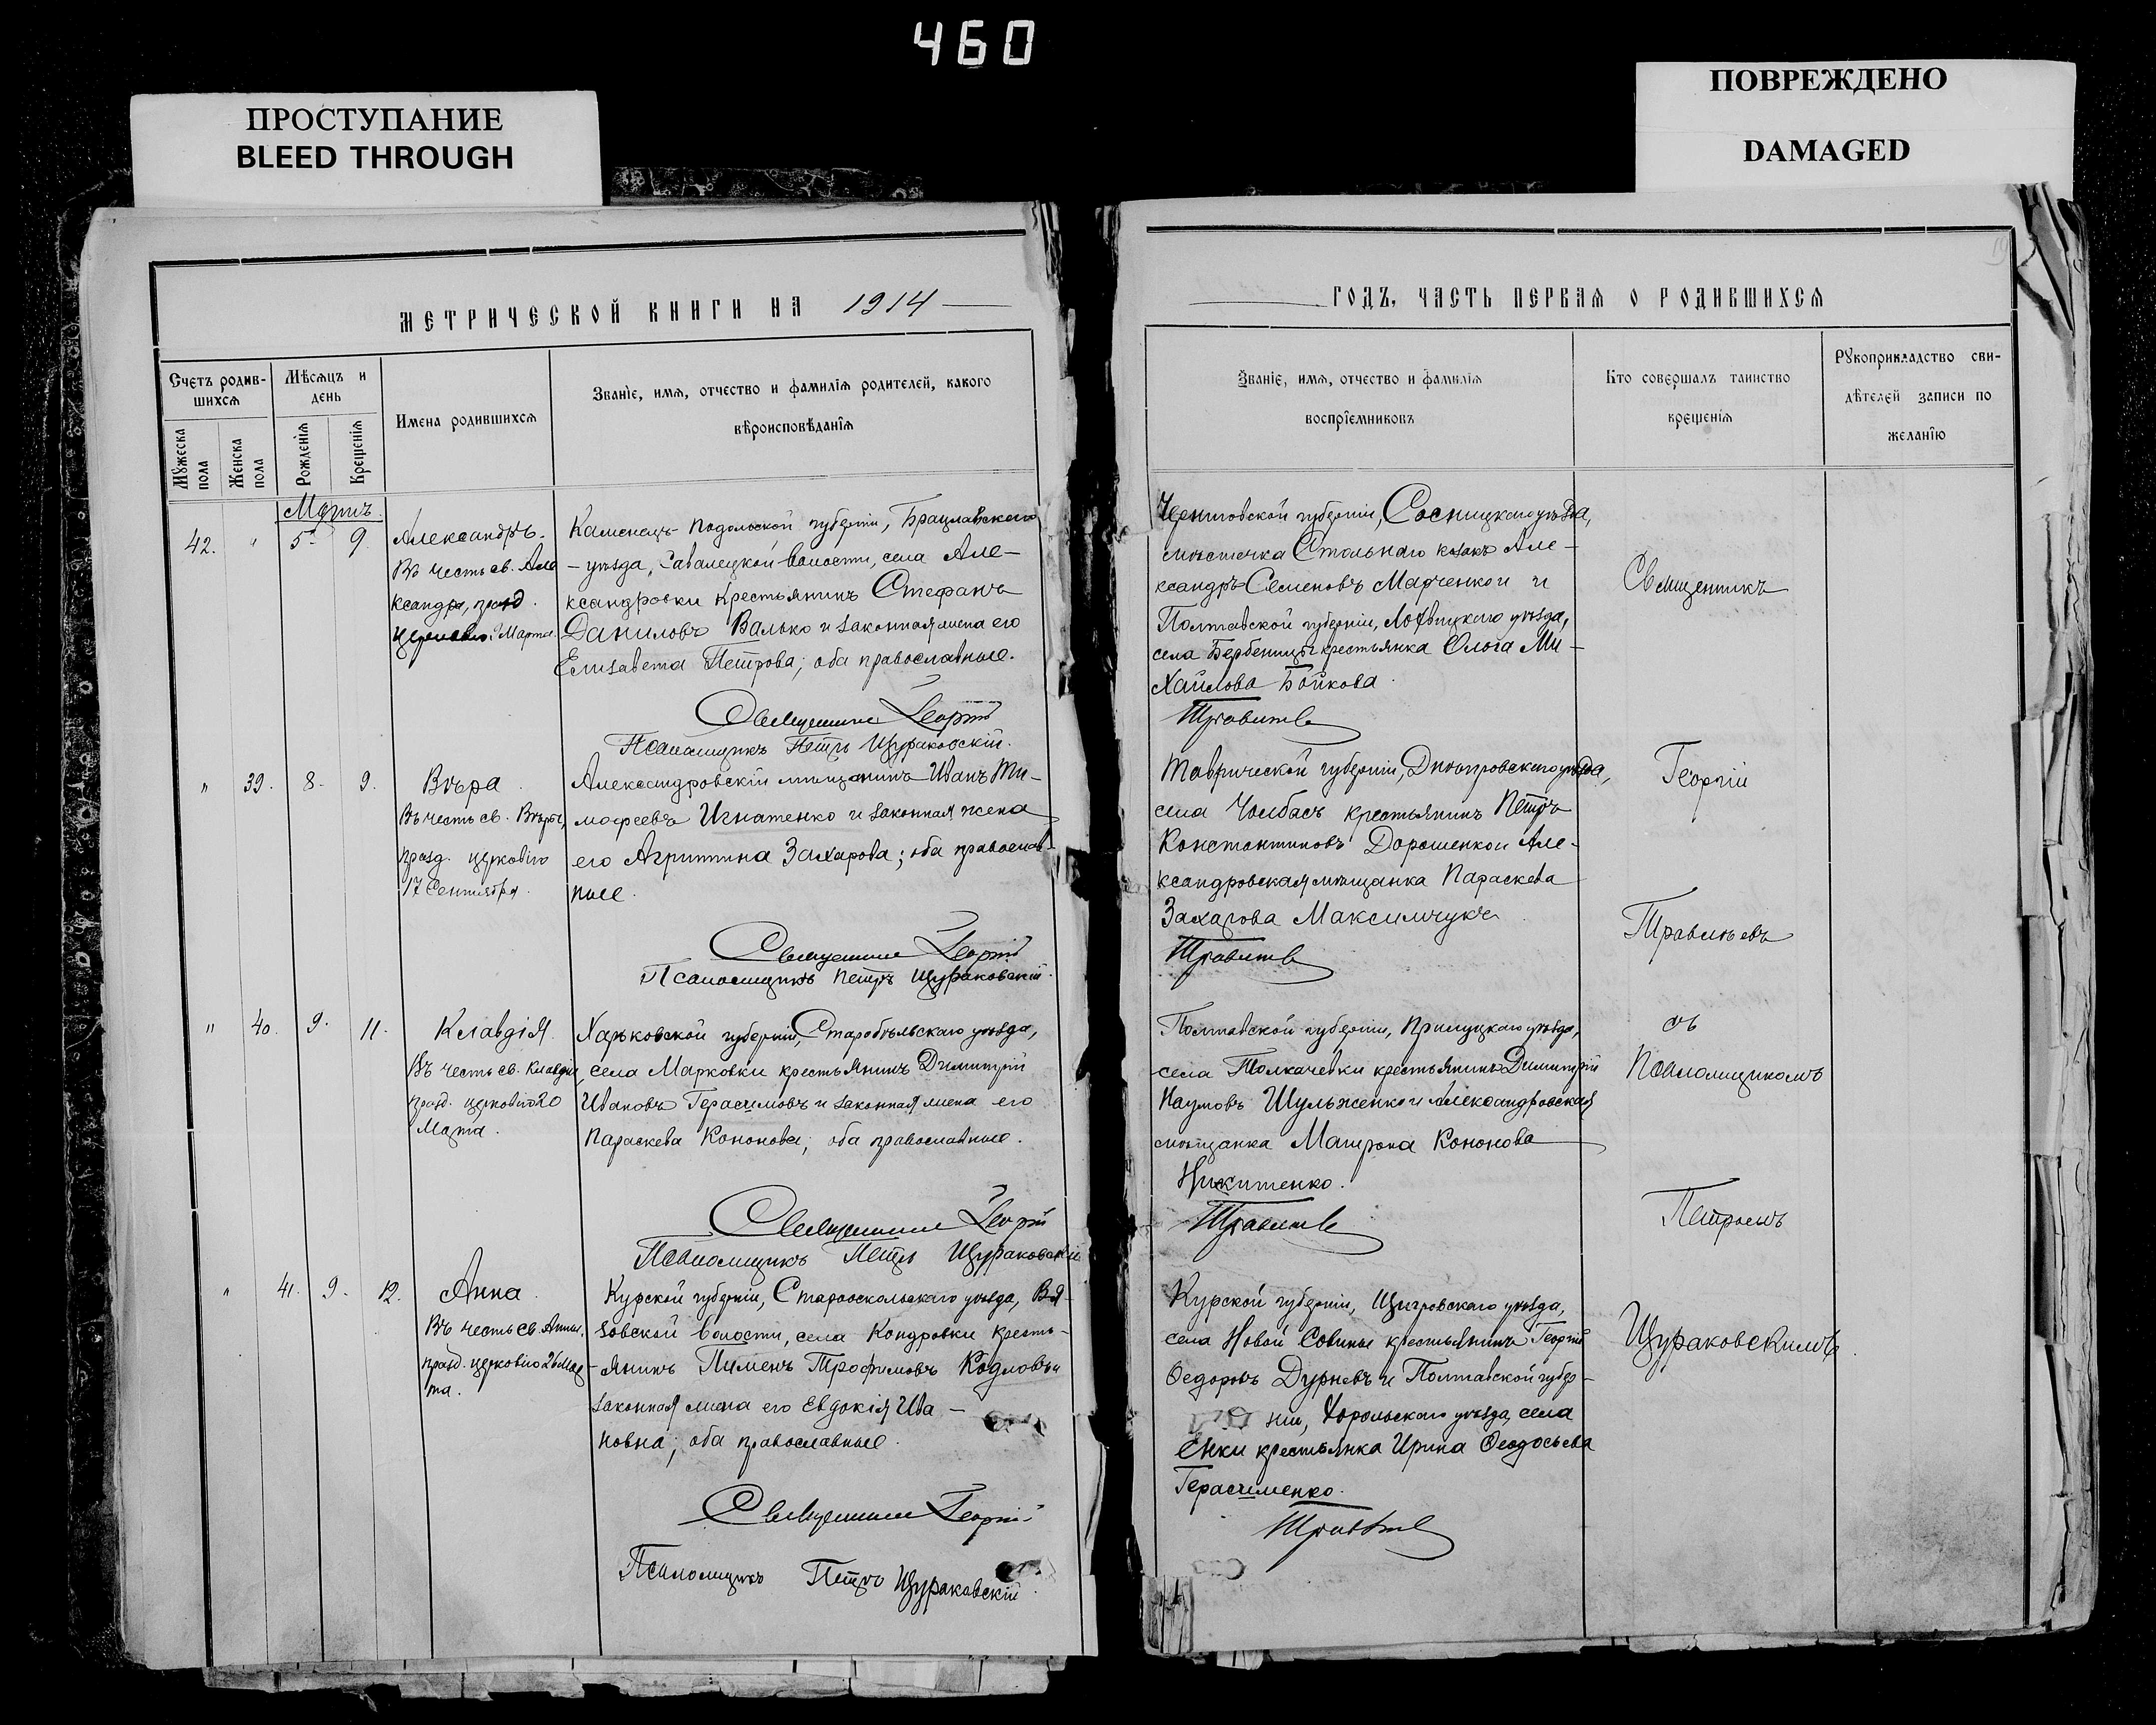 460
ПРОСТУПАНИЕ
BLEED THROUGH
ПОВРЕЖДЕНО
DAMAGED
МЕТРИЧЕСКОЙ КНИГИ НА 1914
Счетъ родив-
шихся
Мѣсяцъ и
день
Имена родившихся
Званіе, имя, отчество и фамилія родителей, какого
вѣроисповѣданія
Мужеска
пола
Женска
пола
Рожденія
Крещенія
Мартъ.
42. " 5. 9.
Александръ.
Въ честь св. Але
ксандра, празд.
Марта
Каменецъ-Подольской губерніи, Брацлавскаго
уѣзда, волости, села Але-
ксандровки крестьянинъ Стефанъ
Даниловъ Валько и законная жена его
Елисавета Петрова; оба православные.
Священникъ Георгій
Псаломщикъ Петръ Щураковскій.
" 39. 8. 9.
Вѣра.
Въ честь св. Вѣры,
празд. церковію
17 Сентября.
Александровскій мѣщанинъ Иванъ Ти-
мофеевъ Игнатенко и законная жена
его Агриппина Захарова; оба православ-
ные.
Священникъ Георгій
Псаломщикъ Петръ Щураковскій.
" 40. 9. 11.
Клавдія
Въ честь св. Клавдіи,
празд. церковію 20
Марта.
Харьковской губерніи, Старобѣльскаго уѣзда,
села Марковки крестьянинъ Димитрій
Ивановъ Герасимовъ и законная жена его
Параскева Кононова; оба православные.
Священникъ Георгій
Псаломщикъ Петръ Щураковскій
" 41. 9. 12.
Анна.
Въ честь св. Анны,
празд. церковію 26 Мар-
та.
Курской губерніи, Старооскольскаго уѣзда, Вя-
зовской волости, села Кондровки кресть-
янинъ Пименъ Трофимовъ и
законная жена его Евдокія Ива-
новна; оба православные.
Священникъ Георгій
Псаломщикъ Петръ Щураковскій.
ГОДЪ, ЧАСТЬ ПЕРВАЯ О РОДИВШИХСЯ
Званіе, имя, отчество и фамилія
воспріемниковъ
Кто совершалъ таинство
крещенія
Рукоприкладство сви-
дѣтелей записи по
желанію
Черниговской губерніи, Сосницкаго уѣзда,
мѣстечка Стольнаго казакъ Але-
ксандръ Семеновъ Марченко и
Полтавской губерніи, Лохвицкаго уѣзда,
села Бербеницы крестьянка Ольга Ми-
хайлова Бойкова.
Травинъевъ
Таврической губерніи, Днѣпровскаго уѣзда,
села Чолбасъ крестьянинъ Петръ
Константиновъ Дорошенко и Але-
ксандровская мѣщанка Параскева
Захарова Максимчукъ.
Полтавской губерніи, Прилуцкаго уѣзда,
села Толкачевки крестьянинъ Димитрій
Наумовъ Шульженко и Александровская
мѣщанка Матрона Кононова
Никитенко.
Курской губерніи, Щигровскаго уѣзда,
села Новой крестьянинъ Георгій
Федоровъ Дурневъ и Полтавской губер-
ніи, Хорольскаго уѣзда, села
Енки крестьянка Ирина Феодосьева
Герасименко.
Священникъ
Георгій
съ
Псаломщикомъ
Петромъ
Щураковскимъ.